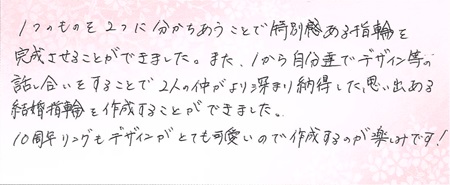 1つのものを2つに分かちあうことで特別感ある指輪を
完成させることができました。また、1から自分達でデザイン等の
話し合いをすることで2人の仲がより深まり納得した、思い出ある
結婚指輪を作成することができました。
10周年リングもデザインがとても可愛いので作成するのが楽しみです!